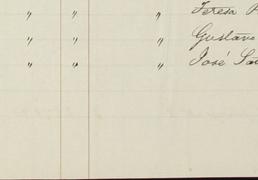 " " " Teresa
" " " Gustavo
" " " José